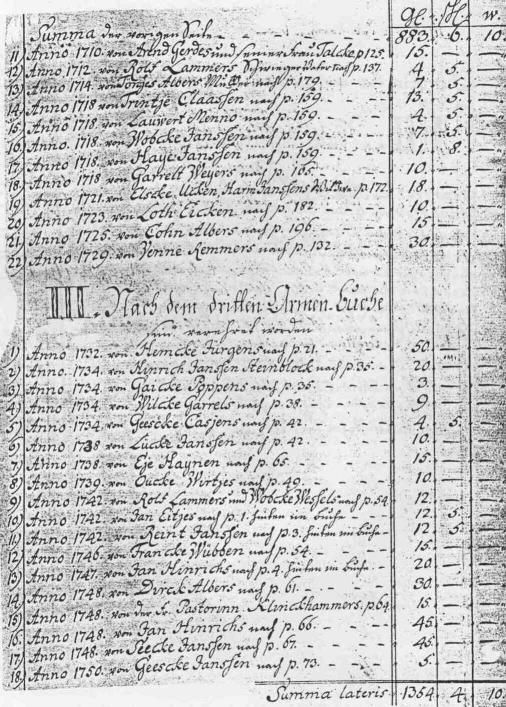 Gl. Sch. w.
Summa der vorigen Seite - 883. 6. 10
11) Anno 1710. von Arend Gerdes und seiner Frau Talcke p 125. 15. — —
12) Anno 1712. von Rolf Lammers Schwiegervater nach p. 137. 4. 5. —
13) Anno 1714. von Tönjes Albers Mutter nach p. 179. 7. 5. —
14) Anno 1718 von Trintje Claassen nach p. 159. - 13. 5. —
15) Anno 1718. von Lauwert Menno nach p. 159. - - 4. 5. —
16) Anno. 1718. von Wobcke Janssen nach p. 159. - - 7. 5. —
17) Anno 1718. von Haye Janssen nach p. 159. - - 1. 8. —
18) Anno 1718 von Garrelt Weyers nach p. 165. - - 10. — —
19) Anno 1721. von Elscke Ucken, Harm Janssens Wittwe p. 172. 18. — —
20) Anno 1723. von Loth Eicken nach p. 182. - - 10. — —
21) Anno 1725. von Cohn Albers p. 196. - - - 15 — —
22) Anno 1729. von Venne Remmers nach p. 132. - - - 30. — —
III. Nach dem dritten Armen-Buche
sind verehret worden
1) Anno 1732. von Hemcke Jürgens nach p. 21. - - - 50. — —
2) Anno. 1734. von Hinrich Janssen Steinblock nach p. 35. - 20. — —
3) Anno 1734. von Gaicke Poppens nach p. 36. - - 3. — —
4) Anno 1734. von Wilcke Garrels nach p. 38. - - 9. — —
5) Anno 1734. von Geescke Casjens nach p. 42. - - 4. 5. —
6) Anno 1738 von Lücke Janssen nach p. 42. - - 10. — —
7) Anno 1738. von Eje Haynen nach p. 65. - - - 15. — —
8) Anno 1739. von Oucke Wirtjes nach p. 49. - - - 10. — —
9) Anno 1742. von Rolf Lammers und Wobcke Wessels nach p. 54. 12. — —
10) Anno 1742. von Jan Eitjes nach p. 1. hinten im Buche - 12. 5. —
11) Anno 1742. von Reint Janssen nach p. 3. hinten im Buche - 12. 5. —
12) Anno 1746. von Francke Wübben nach p. 54. - - - 15. — —
13) Anno 1747. von Jan Hinrichs nach p. 4. hinten im Buche. 20. — —
14) Anno 1748. von Dirck Albers nach p. 61. - - - 30. — —
15) Anno 1748. von der Fr. Pastorinn Klinckhammers. p 64. 15. — —
16) Anno 1748. von Jan Hinrichs nach p. 66. - - - 45. — —
17) Anno 1748. von Seecke Janssen nach p. 67. - - - 45. — —
18) Anno 1750. von Geescke Janssen nach p. 73. - - - 5. — —
Summa lateris - 1354. 4. 10.